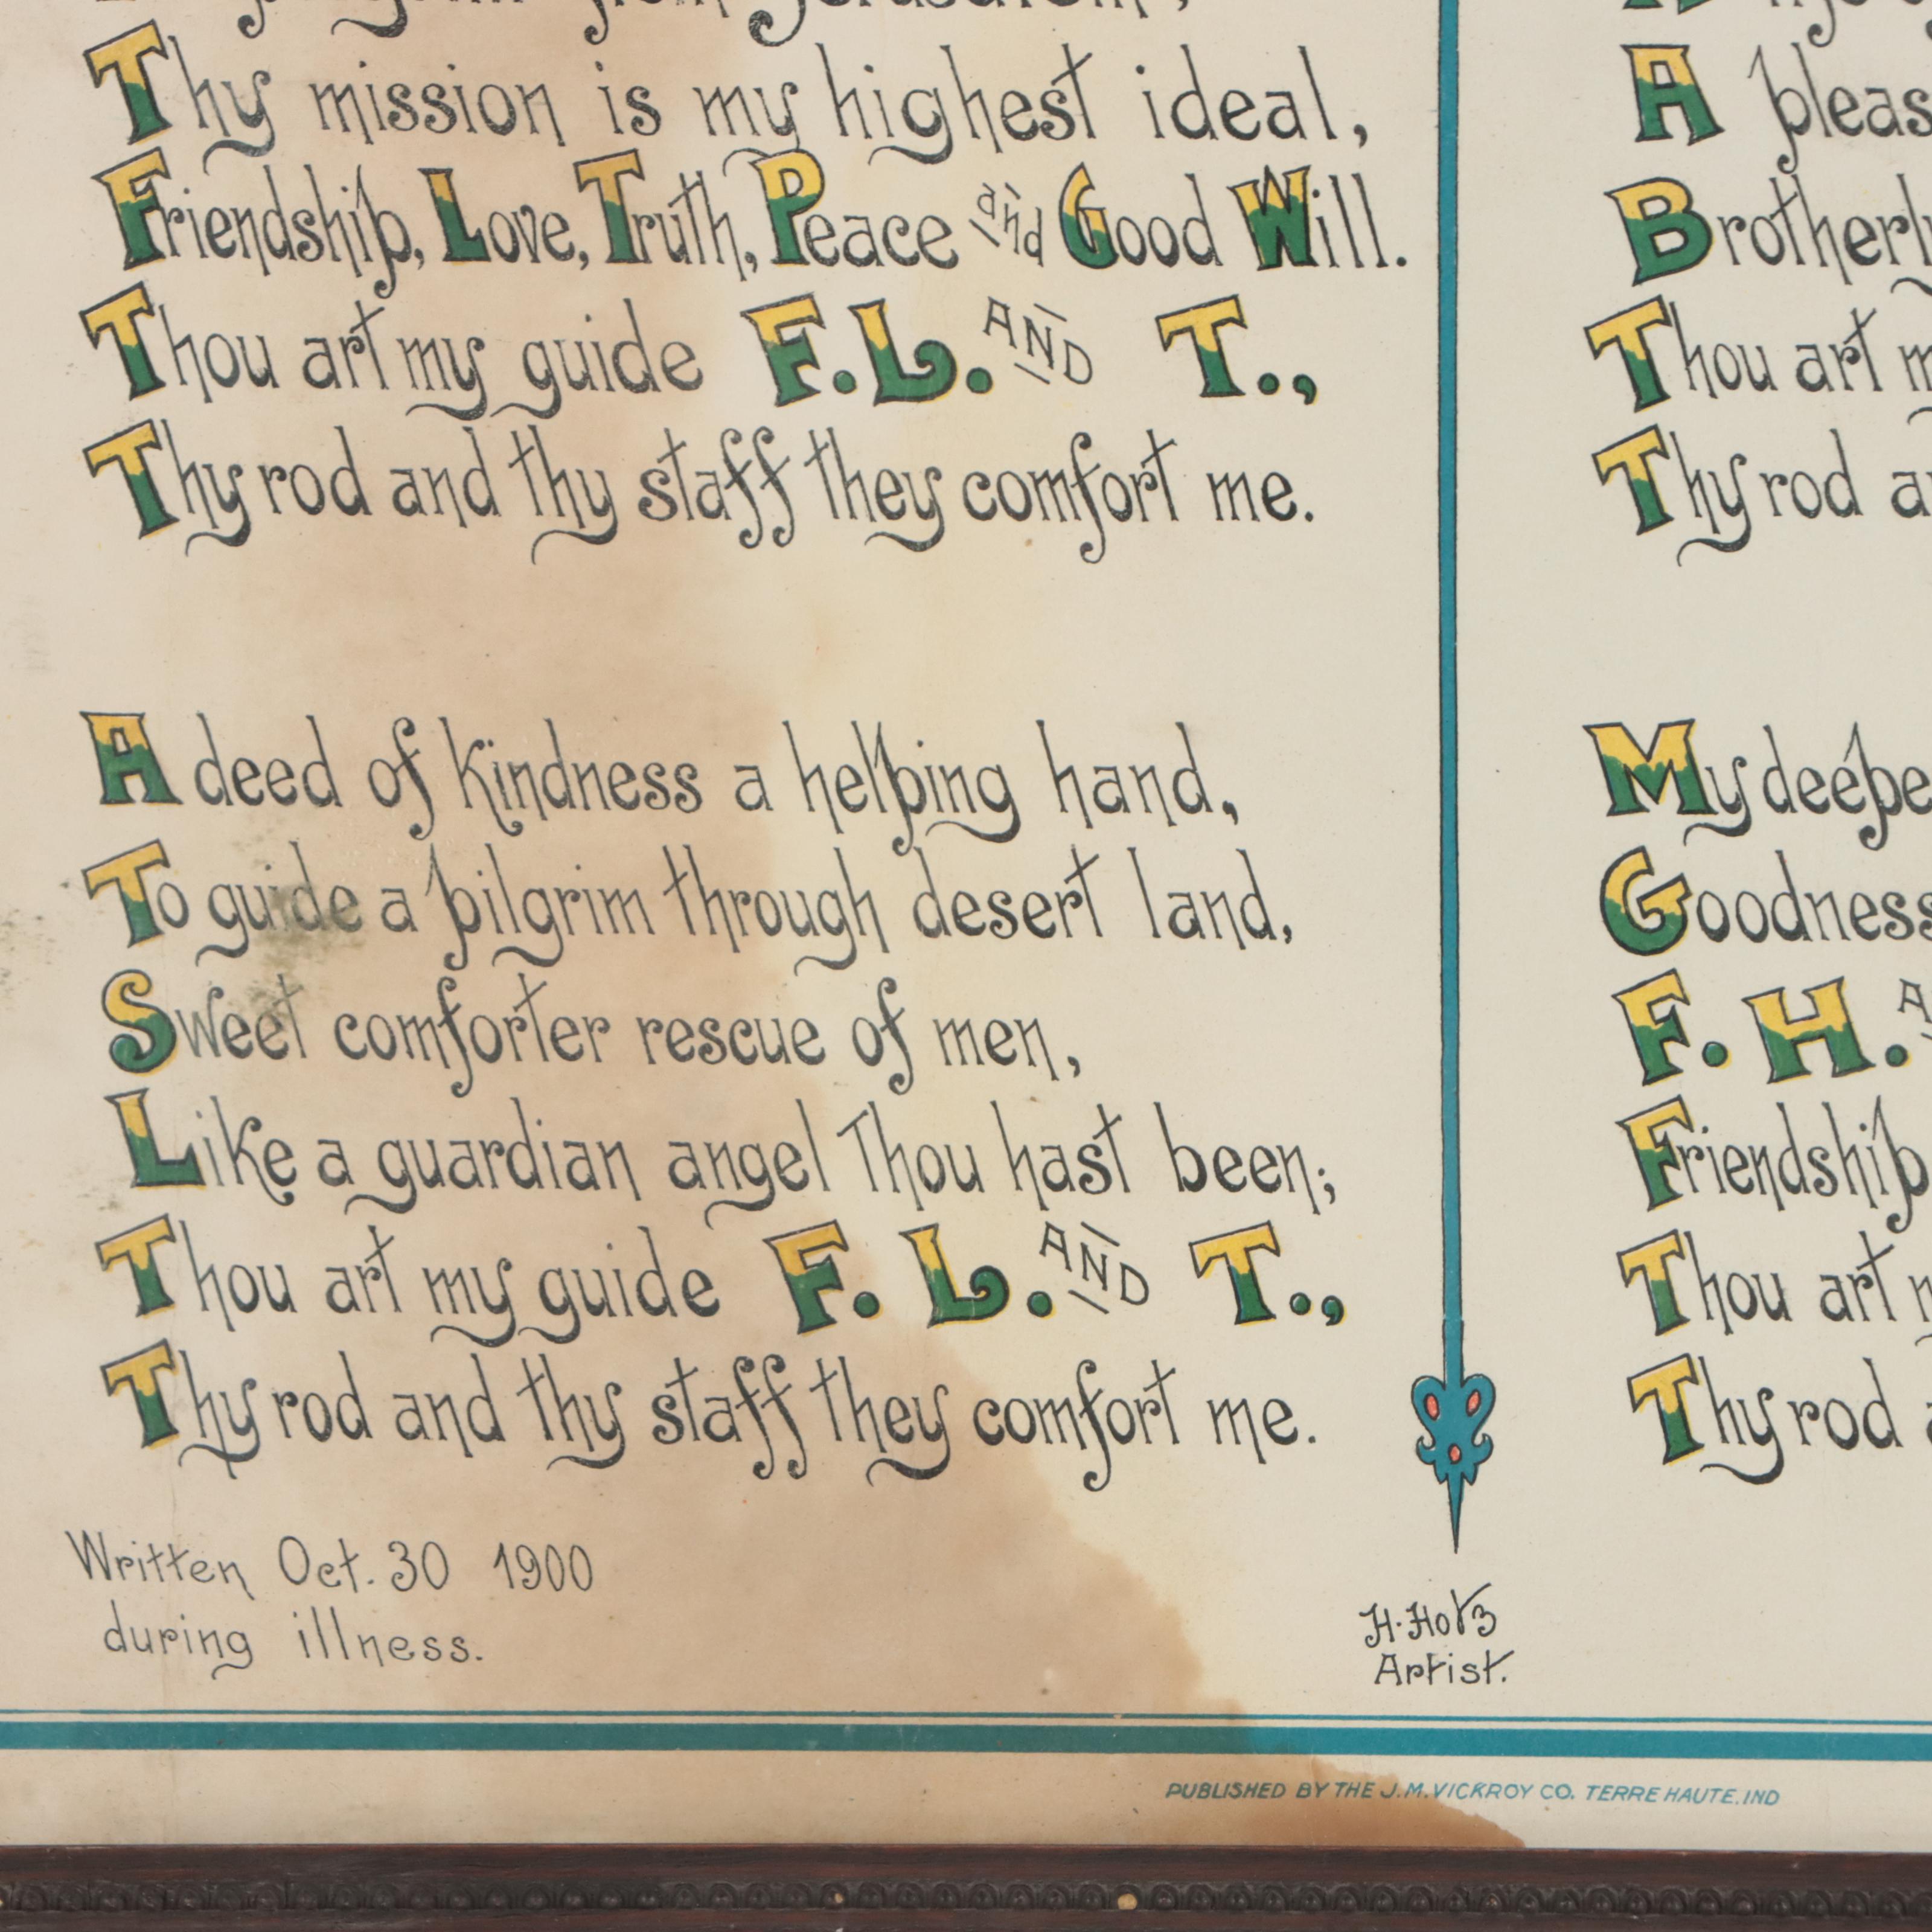 Thy mission is my highest ideal,
Friendship, Love, Truth, Peace and Good Will.
Thou art my guide F. L. AND T.,
Thy rod and thy staff they comfort me.
A deed of kindness a helping hand,
To guide a pilgrim through desert land,
Sweet comforter rescue of men,
Like a guardian angel Thou hast been;
Thou art my guide F. L. AND T.,
Thy rod and thy staff they comfort me.
Written Oct. 30 1900
during illness.
A
Thou art
Thy rod
Goodness
F. H.
Friendship
Thou art
Thy rod
H. Hotz
Artist.
PUBLISHED BY THE J. M. VICKROY CO. TERRE HAUTE. IND